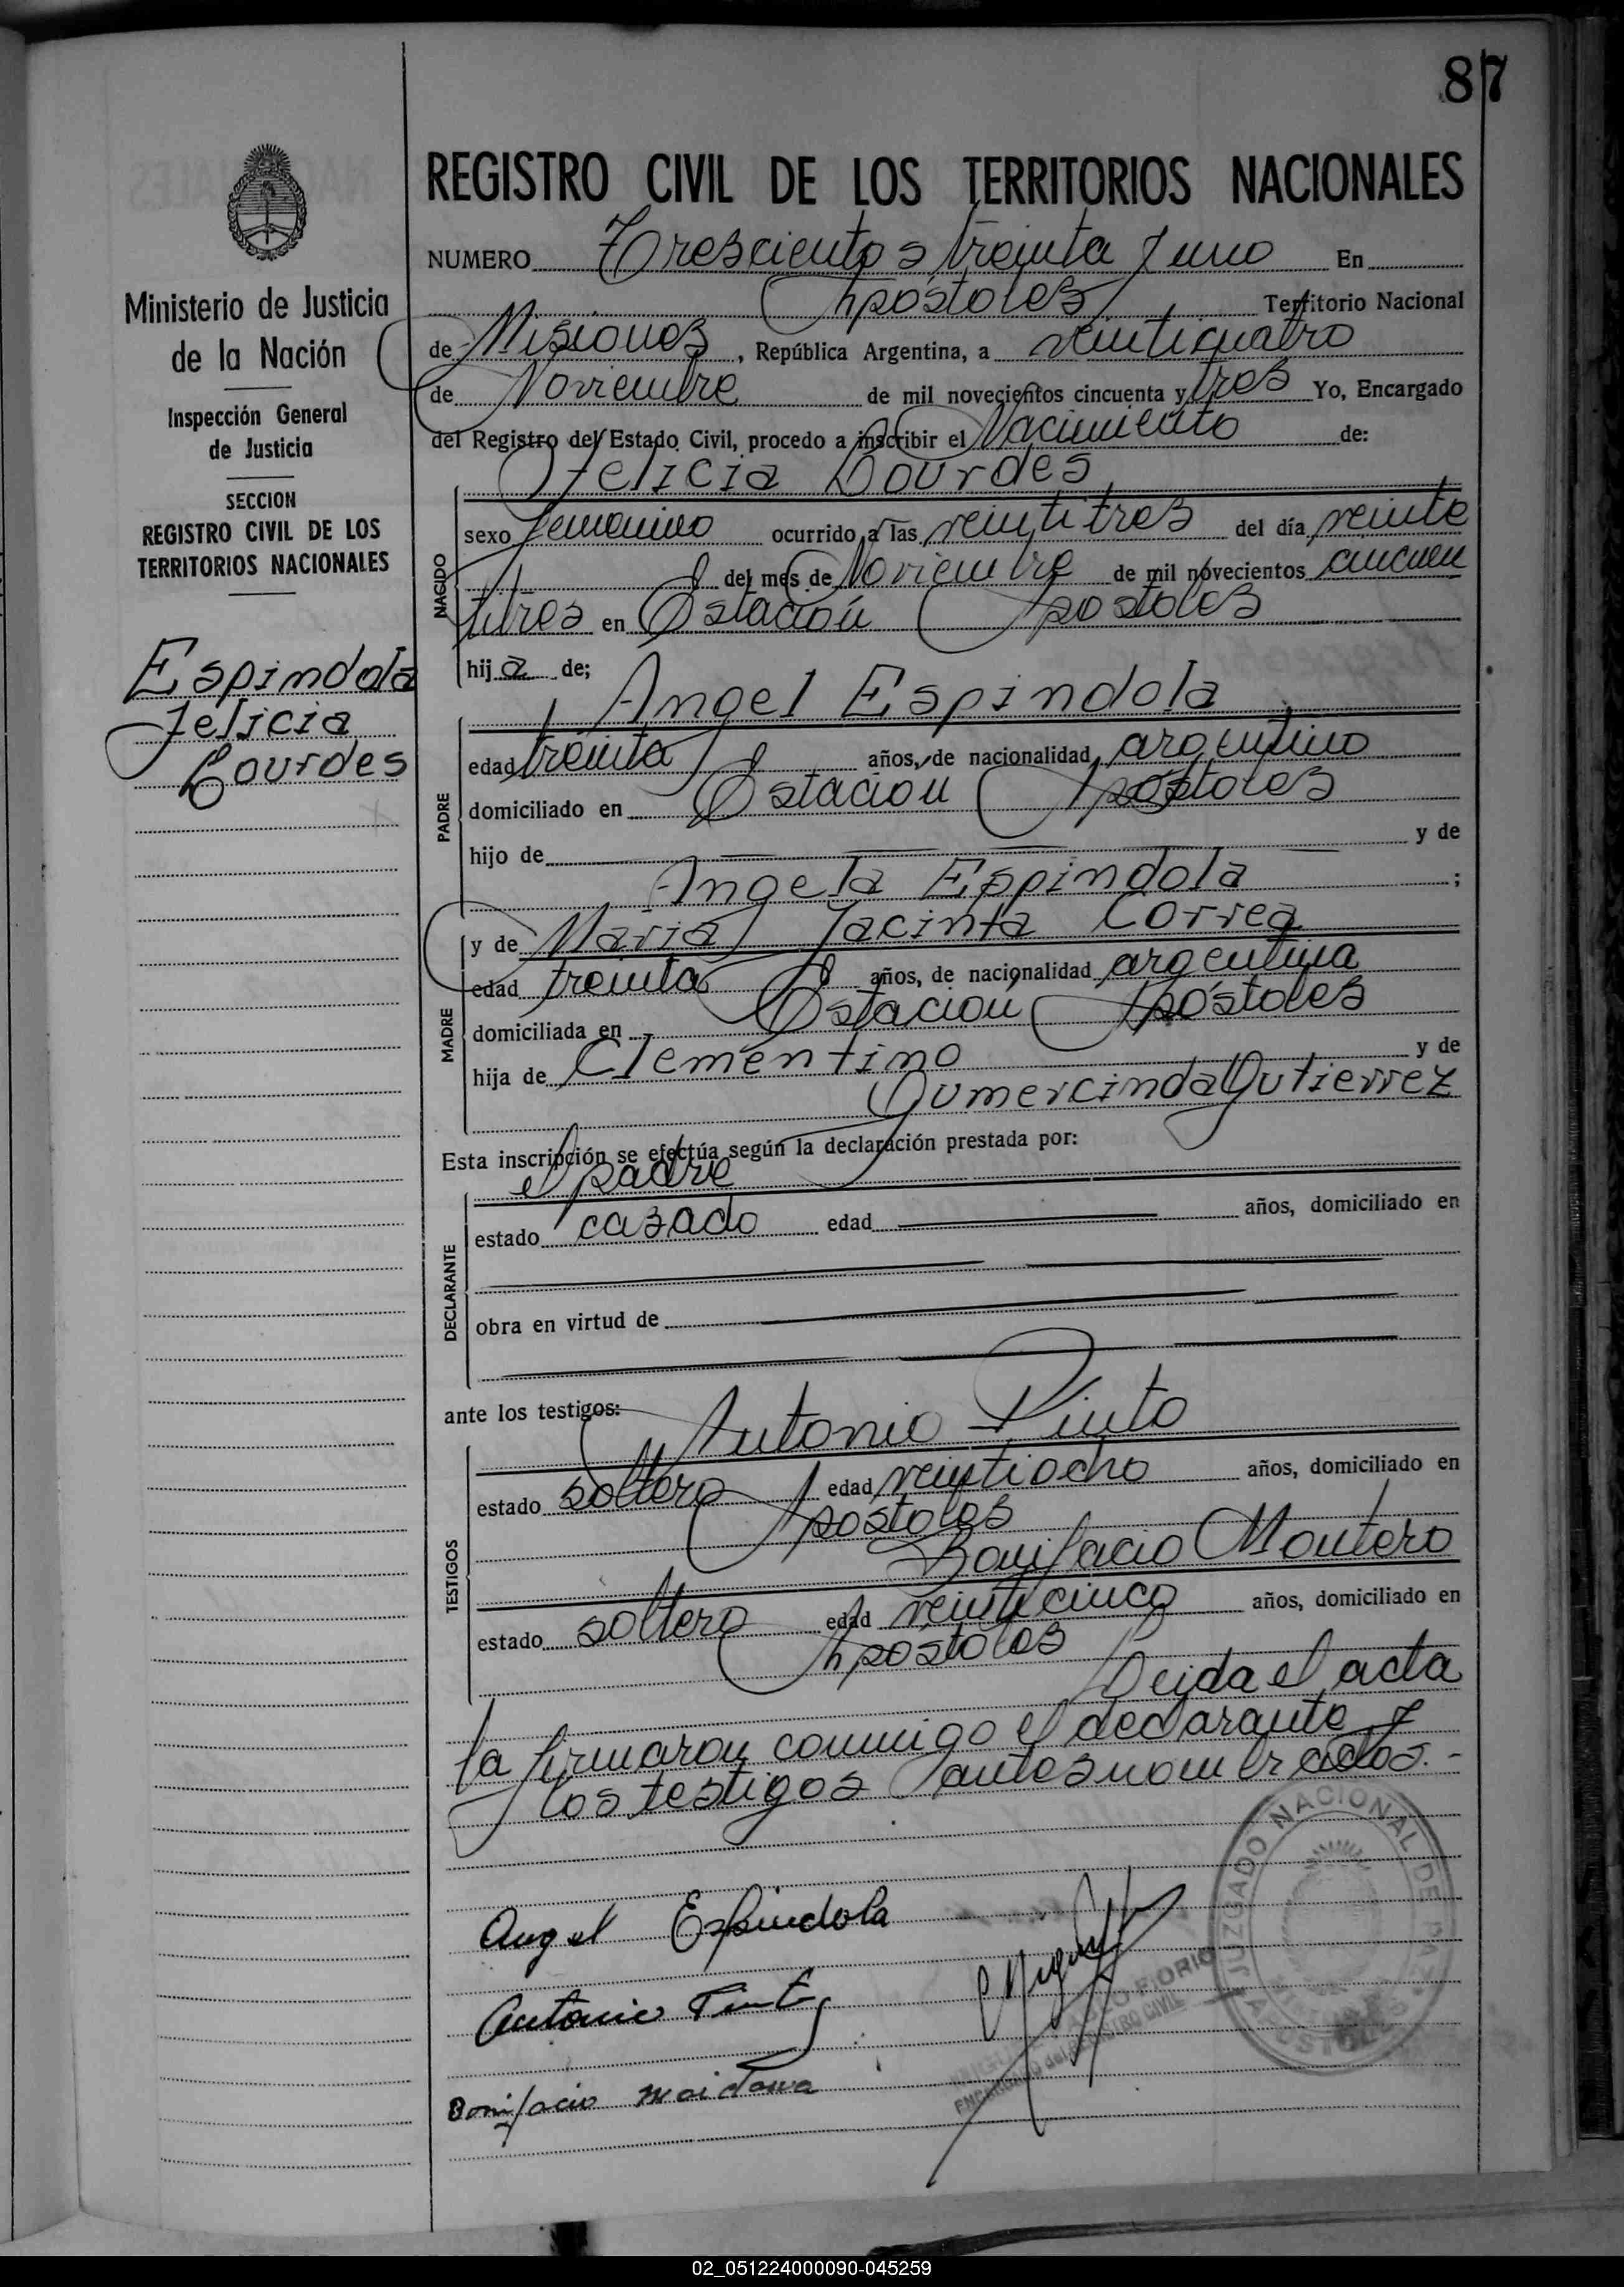 87
Ministerio de Justicia
de la Nación
Inspección General
de Justicia
SECCION
REGISTRO CIVIL DE LOS
TERRITORIOS NACIONALES
Espindola
Felicia
Lourdes
REGISTRO CIVIL DE LOS TERRITORIOS NACIONALES
NUMERO Trescientos treinta y uno En
Apóstoles Territorio Nacional
de Misiones, República Argentina, a veinticuatro
de Noviembre de mil novecientos cincuenta y tres Yo, Encargado
del Registro del Estado Civil, procedo a inscribir el Nacimiento de:
Felicia Lourdes
NACIDO
sexo femenino ocurrido a las veintitres del día veinte
del mes de Noviembre de mil novecientos cincuen
titres en Estación Apostoles
hija de;
Angel Espindola
PADRE
edad treinta años, de nacionalidad argentino
domiciliado en Estacion Apóstoles
hijo de y de
Angela Espindola ;
y de Maria Jacinta Correa
MADRE
edad treinta años, de nacionalidad argentina
domiciliada en Estacion Apóstoles
hija de Clementino y de
Gumercinda Gutierrez
Esta inscripción se efectúa según la declaración prestada por:
el padre
DECLARANTE
estado casado edad años, domiciliado en
obra en virtud de
ante los testigos:
Antonio Pinto
TESTIGOS
estado soltero edad veintiocho años, domiciliado en
Apostoles
Bonifacio Montero
estado soltero edad veinticinco años, domiciliado en
Apóstoles
Leida el acta
la firmaron conmigo el declarante y
los testigos antes nombrados.-
Angel Espindola
Antonio Pinto
Bonifacio
JUZGADO NACIONAL DE PAZ
ENCARGADO del REGISTRO CIVIL
02_051224000090-045259